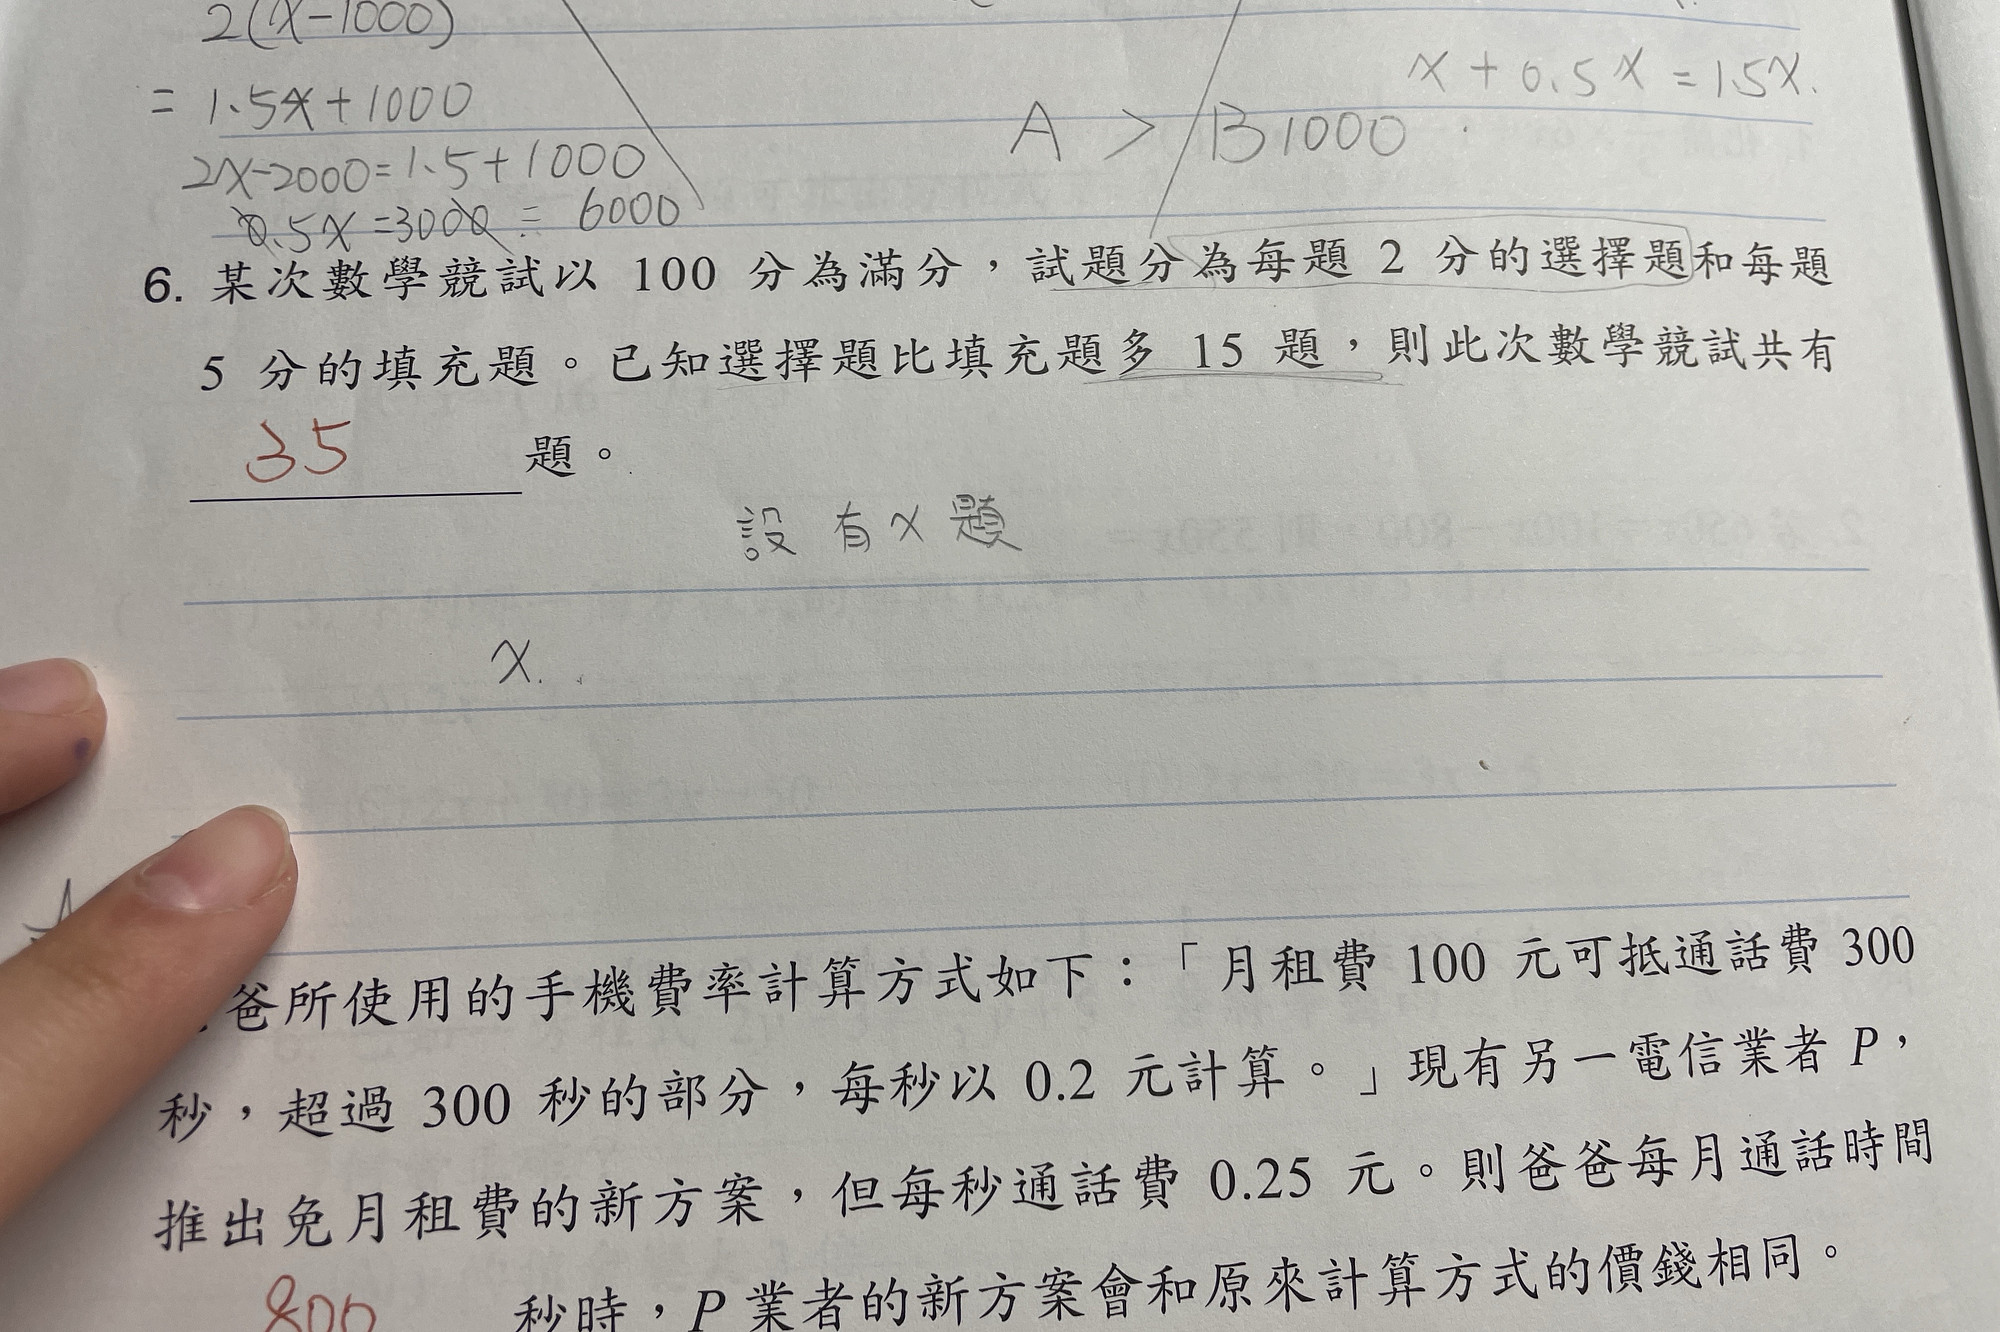 2(x-1000)
= 1.5x+1000
x + 0.5x = 1.5x.
A > B 1000
2x-2000=1.5+1000
0.5x =3000 = 6000
6. 某次數學競試以 100 分為滿分，試題分為每題 2 分的選擇題和每題
5 分的填充題。已知選擇題比填充題多 15 題，則此次數學競試共有
35 題。
設 有 x 題
x.
爸所使用的手機費率計算方式如下：「月租費 100 元可抵通話費 300
秒，超過 300 秒的部分，每秒以 0.2 元計算。」現有另一電信業者 P，
推出免月租費的新方案，但每秒通話費 0.25 元。則爸爸每月通話時間
800 秒時，P 業者的新方案會和原來計算方式的價錢相同。